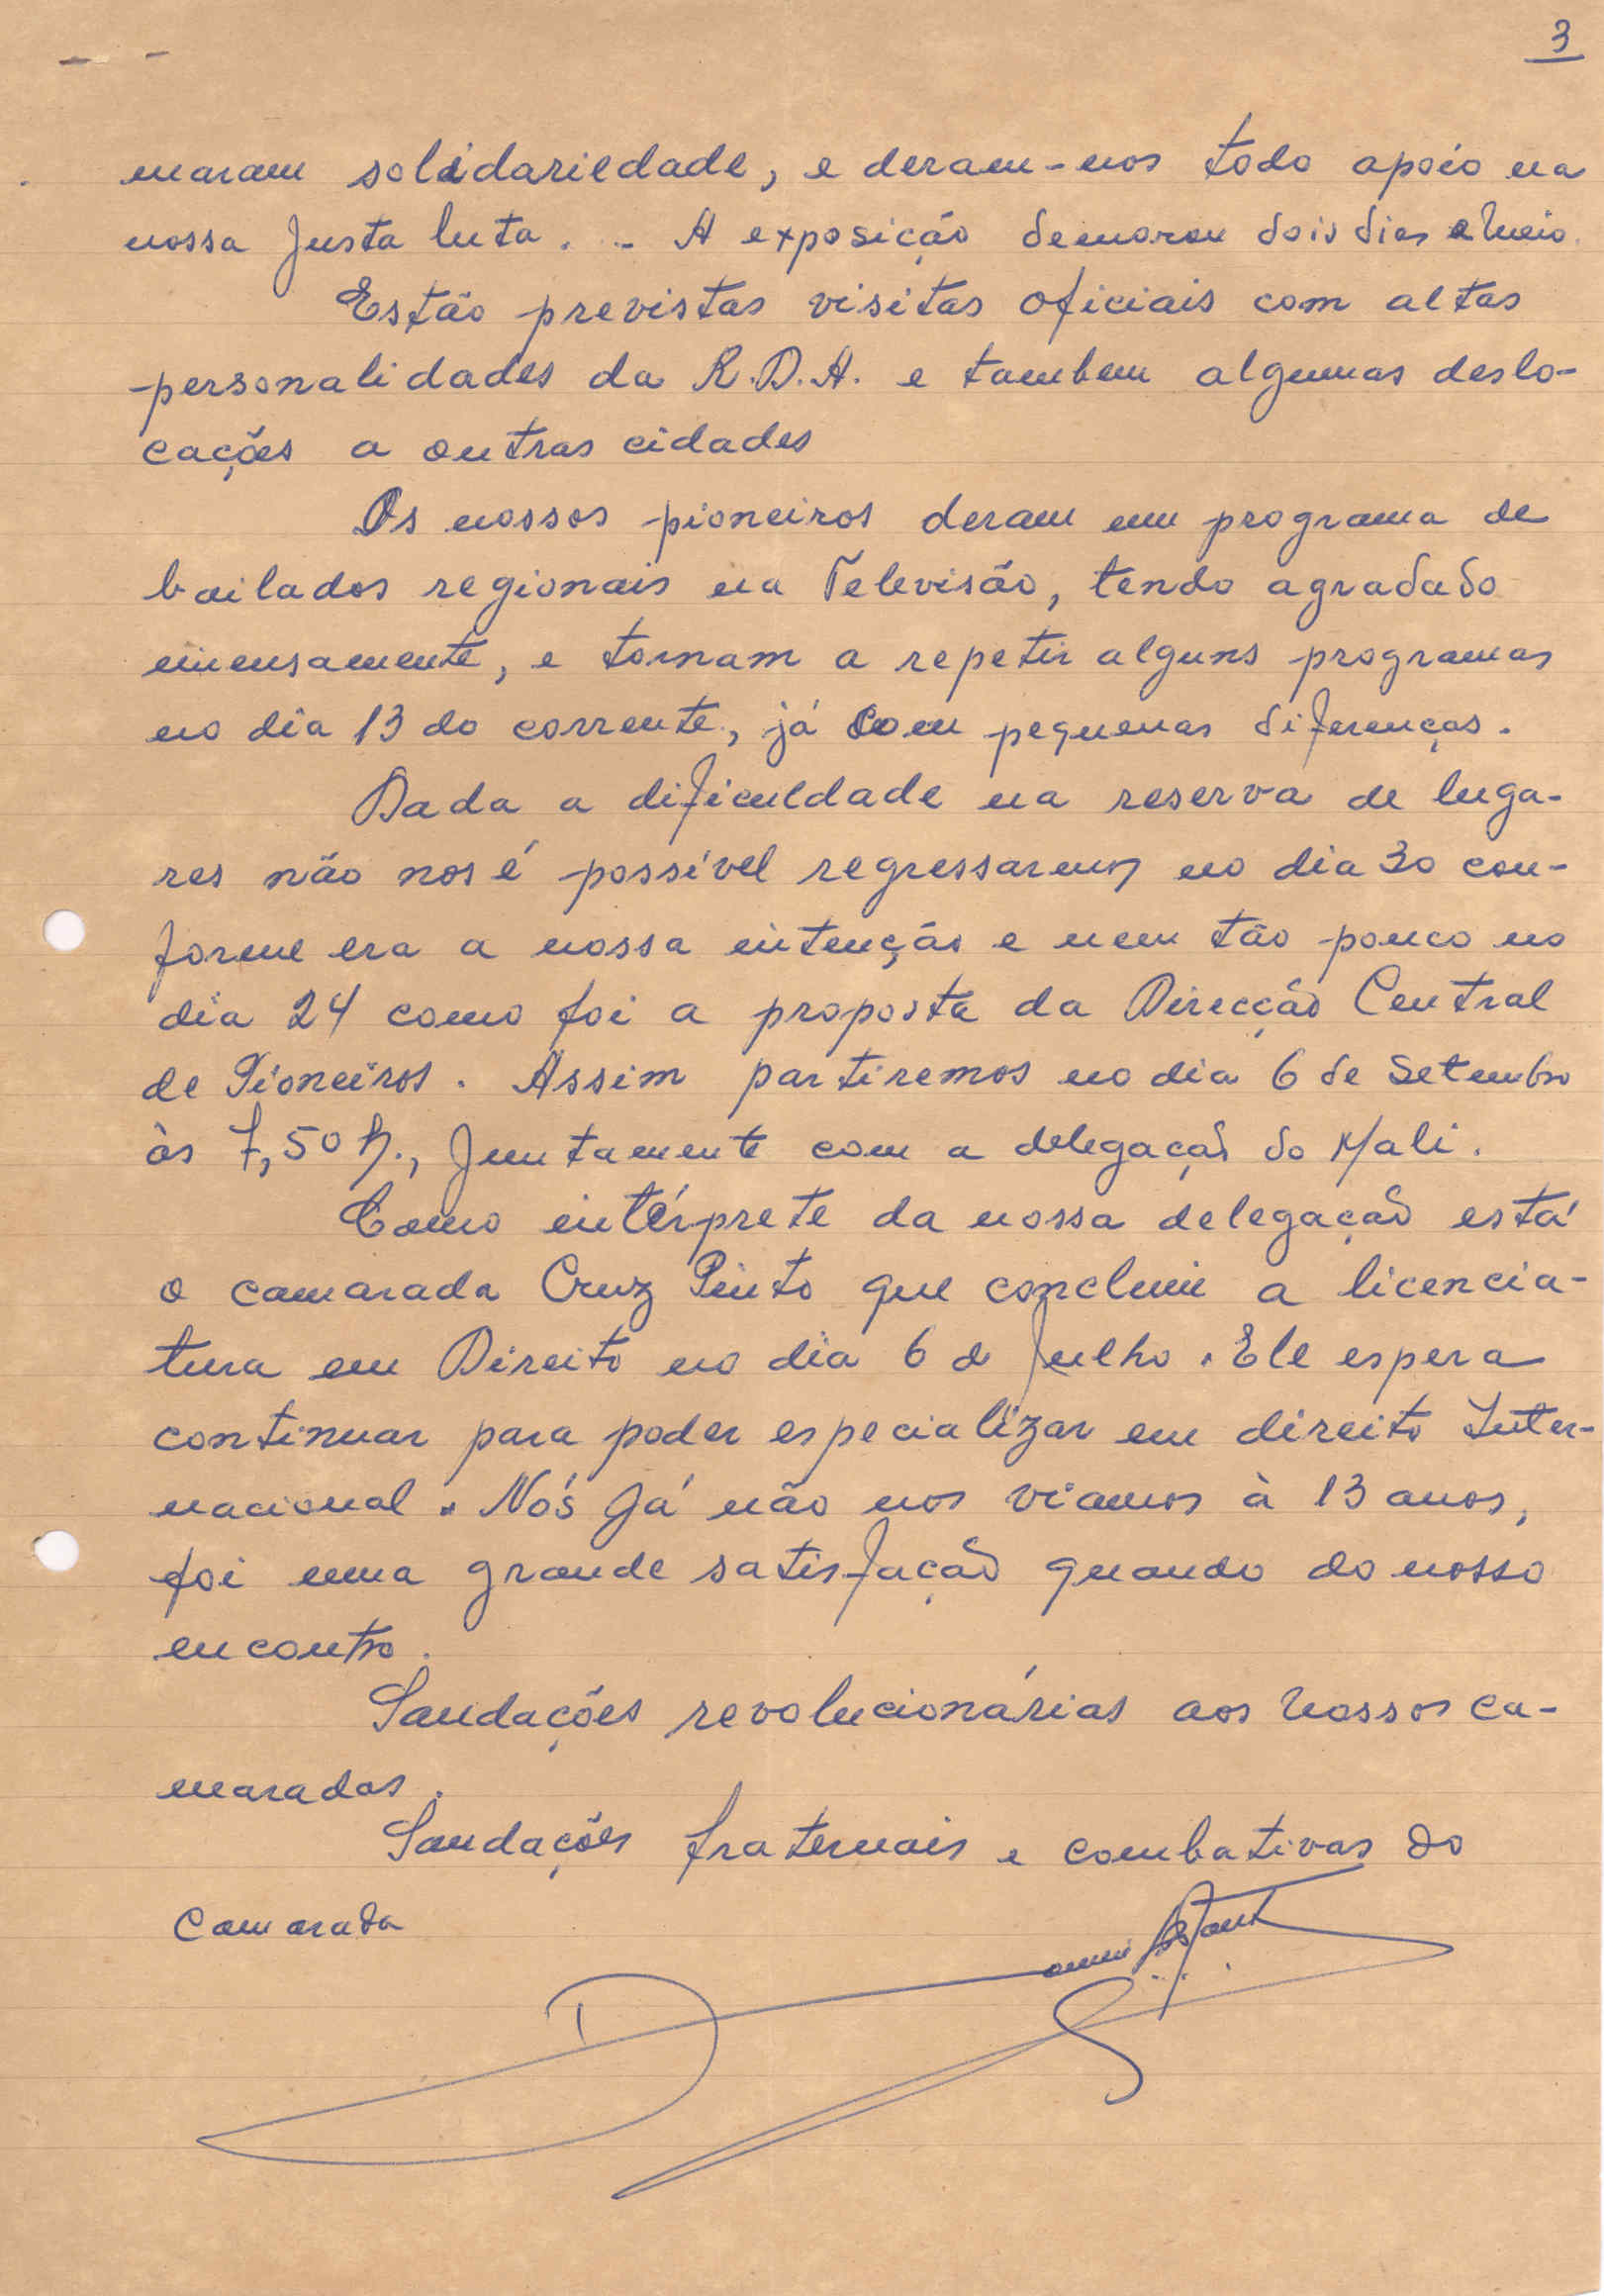 3
maram solidariedade, e deram-nos todo apoio na
nossa justa luta. - A exposição demorou dois dias e meio.
Estão previstas visitas oficiais com altas
personalidades da R.D.A. e tambem algumas deslo-
cações a outras cidades
Os nossos pioneiros deram um programa de
bailados regionais na Televisão, tendo agradado
imensamente, e tornam a repetir alguns programas
no dia 13 do corrente, já com pequenas diferenças.
Dada a dificuldade na reserva de luga-
res não nos é possível regressarmos no dia 30 con-
forme era a nossa intenção e nem tão pouco no
dia 24 como foi a proposta da Direcção Central
de Pioneiros. Assim partiremos no dia 6 de Setembro
às 7,50 h., juntamente com a delegação do Mali.
Como intérprete da nossa delegação está
o camarada Cruz Pinto que concluiu a licencia-
tura em Direito no dia 6 de Julho. Ele espera
continuar para poder especializar em direito Inter-
nacional. Nós já não nos viamos à 13 anos,
foi uma grande satisfação quando do nosso
encontro.
Saudações revolucionárias aos nossos ca-
maradas.
Saudações fraternais e combativas do
Camarada